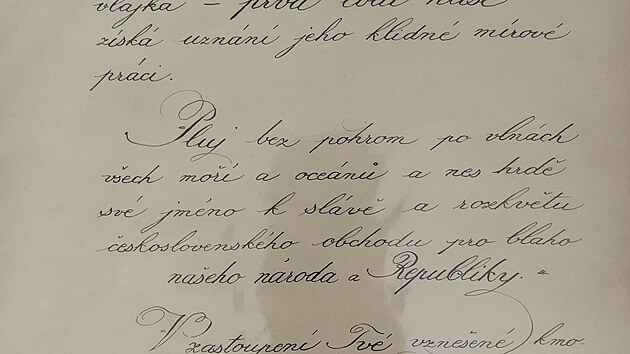 vlajka – prvá
získá uznání jeho klidné mírové
práci.
Pluj bez pohrom po vlnách
všech moří a oceánů a nes hrdě
své jméno k slávě a rozkvětu
československého obchodu pro blaho
našeho národa a Republiky. "
V zastoupení Tvé vznešené kmo